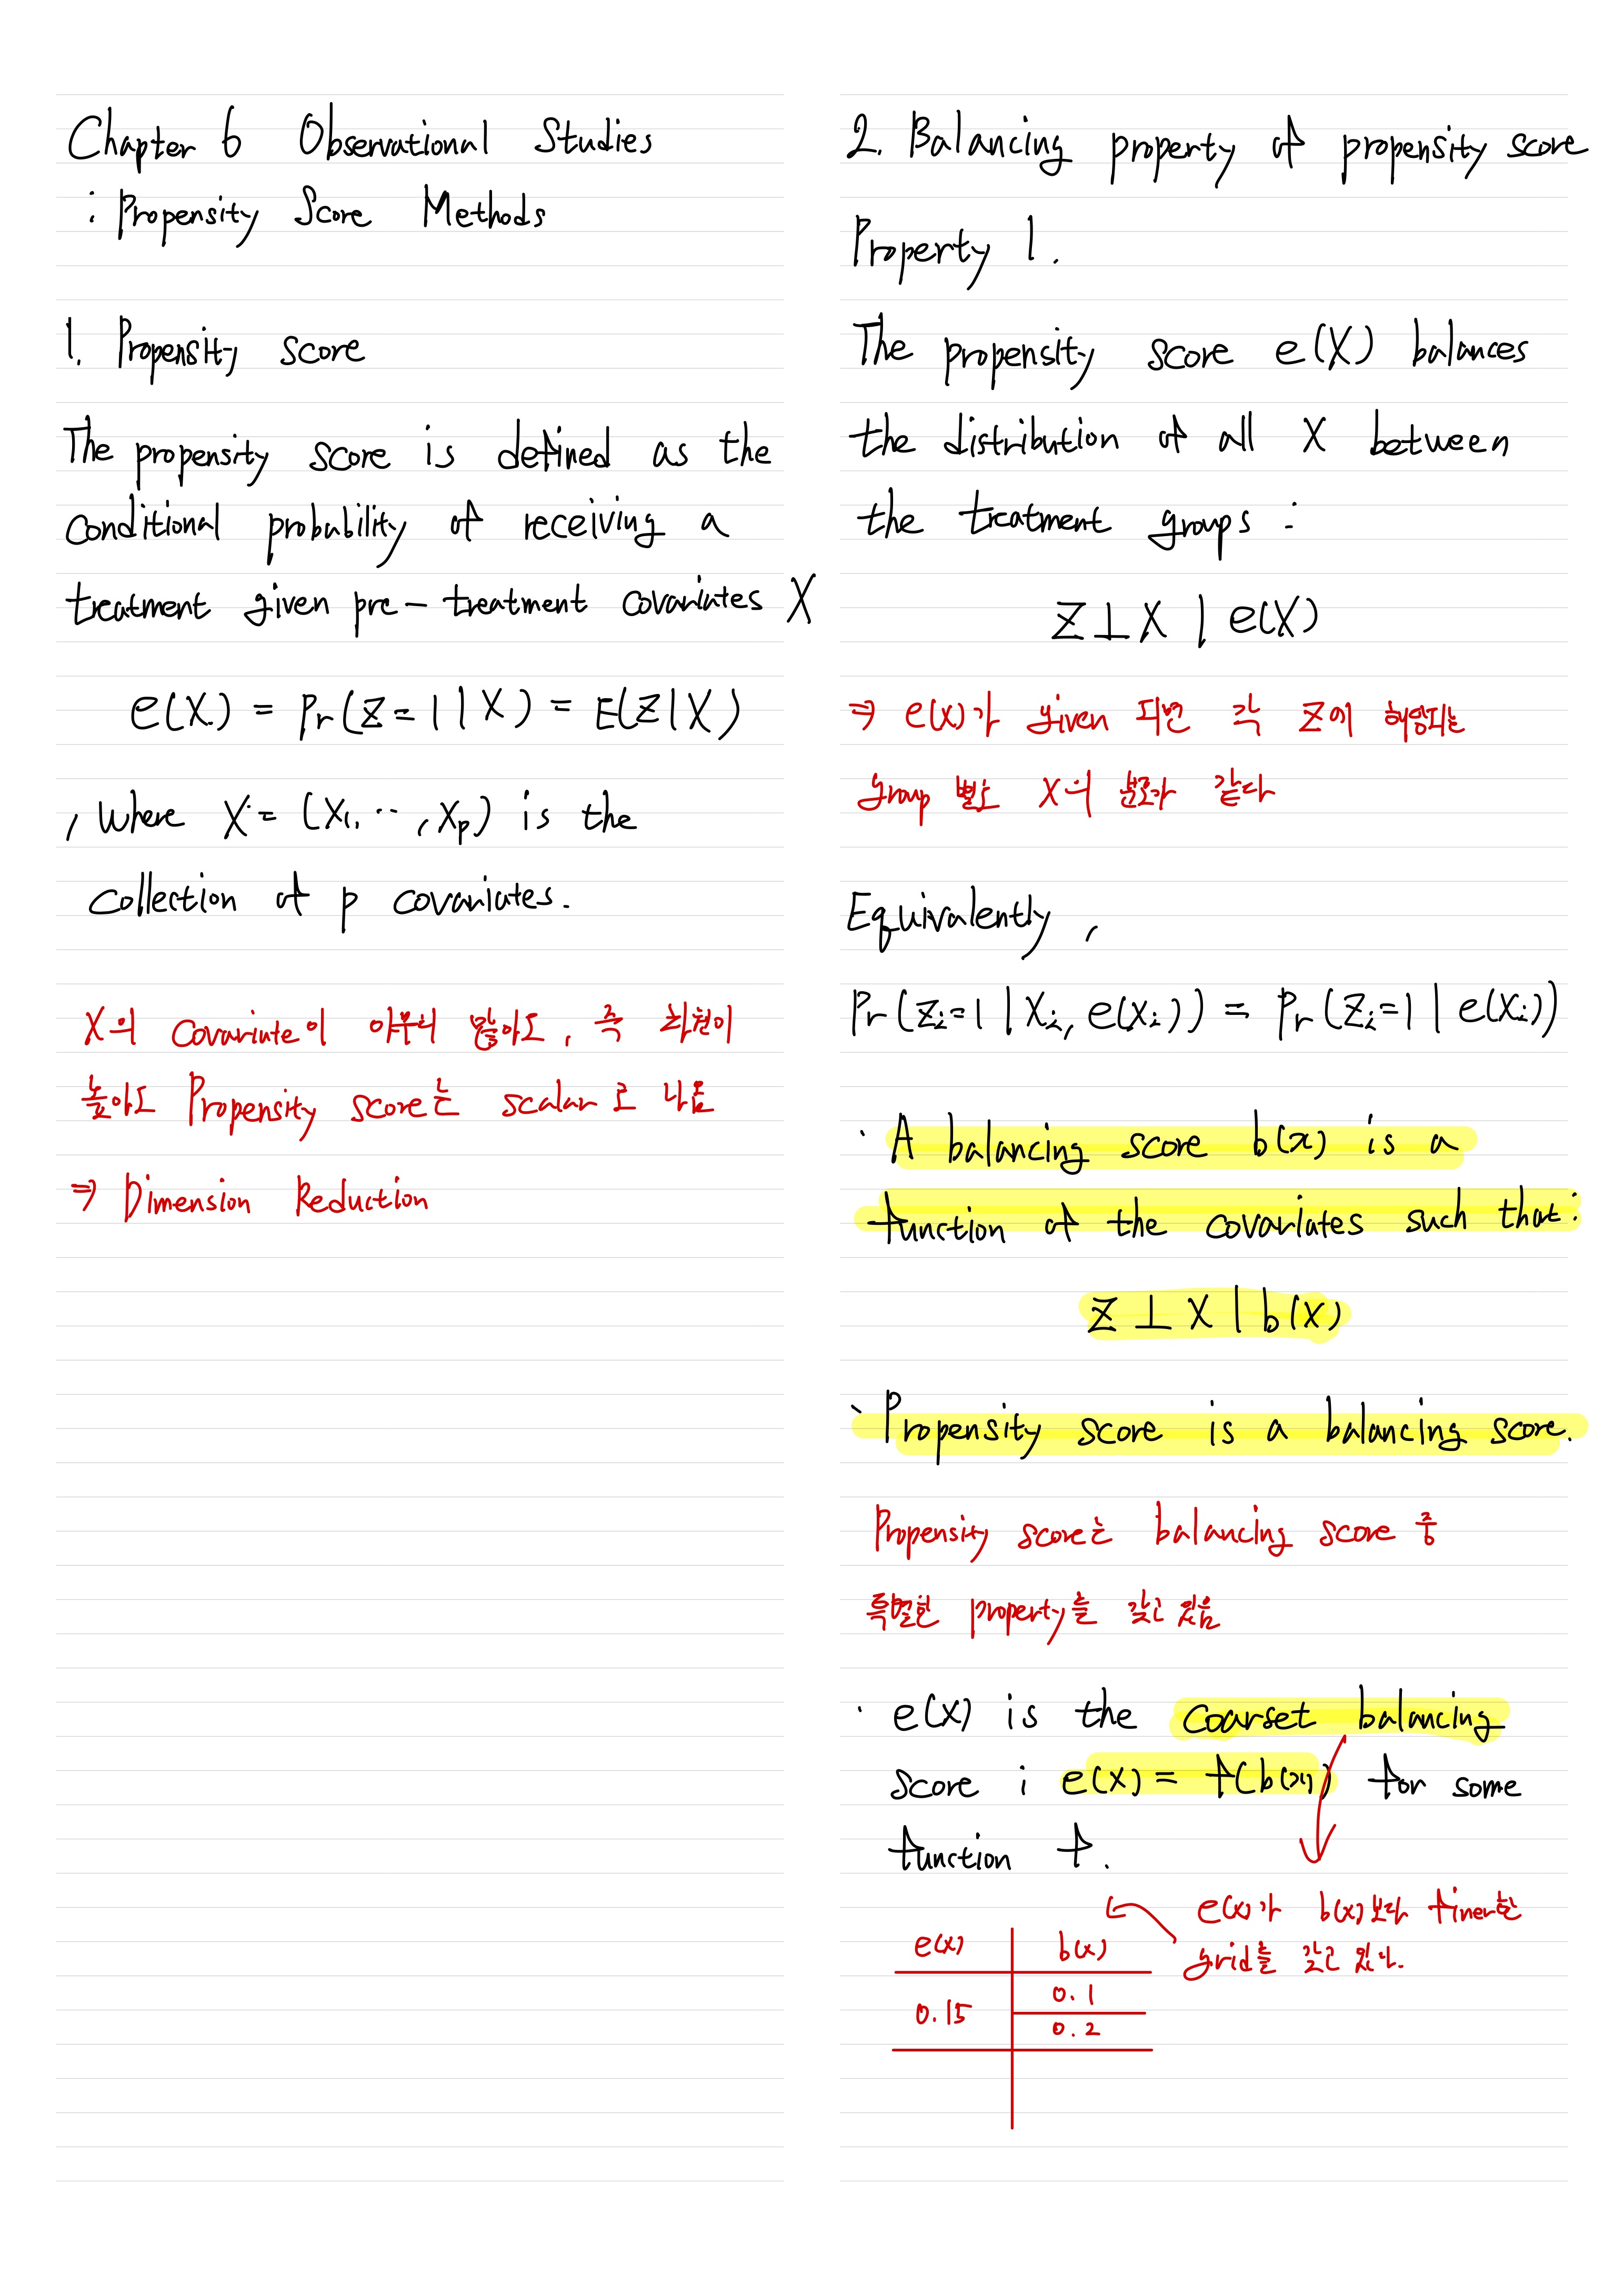 Chapter 6 Observational Studies
: Propensity Score Methods
1. Propensity score
The propensity score is defined as the
conditional probability of receiving a
treatment given pre-treatment covariates X
e(X) = Pr(Z=1|X) = E(Z|X)
, where X = (X1, ..., Xp) is the
collection of p covariates.
X의 covariate이 아무리 많아도, 즉 차원이
높아도 Propensity score는 scalar로 나옴
⇒ Dimension Reduction
2. Balancing property of propensity score
Property 1.
The propensity score e(X) balances
the distribution of all X between
the treatment groups :
Z ⊥ X | e(X)
⇒ e(x)가 given 되면 각 Z에 해당되는
group 별로 X의 분포가 같다
Equivalently,
Pr(Zi=1 | Xi, e(Xi)) = Pr(Zi=1 | e(Xi))
· A balancing score b(x) is a
function of the covariates such that:
Z ⊥ X | b(X)
· Propensity score is a balancing score.
Propensity score는 balancing score 중
특별한 property를 갖고 있음
· e(X) is the coarset balancing
score ; e(X) = f(b(x)) for some
function f.
e(x)가 b(x)보다 finer한
grid를 갖고 있다.
e(x) b(x)
0.15 0.1
0.2